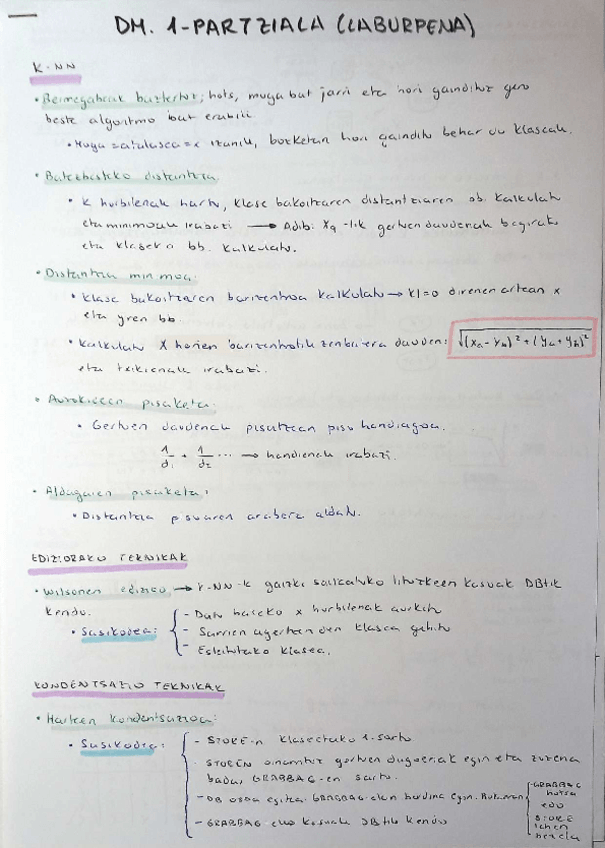 DM. 1-PARTZIALA (LABURPENA)
K-NN
• Berme gabeak baztertuz; hots, muga bat jarri eta hori gaindituz gero
beste algoritmo bat erabili.
• Muga = atalasea = x izanik, bozketan hori gainditu behar du klaseak.
• Batezbesteko distantzia
• K hurbilenak hartu, klase bakoitzaren distantziaren bb. kalkulatu
eta minimoak irabazi → Adib: Xq -tik gertuen daudenak begiratu
eta klaseko bb. kalkulatu.
• Distantzia minimoa:
• Klase bakoitzaren barizentroa kalkulatu → kl=0 direnen artean x
eta yren bb.
• Kalkulatu X horien barizentrotik zenbatera dauden: √(xa - xb)² + (ya + yb)²
eta txikienak irabazi.
• Auzokideen pisaketa:
• Gertuen daudenak pisatzean pisu handiagoa.
1/d1 + 1/d2 ... → handienak irabazi.
• Aldagaien pisaketa:
• Distantzia pisuaren arabera aldatu.
EDIZIORAKO TEKNIKAK
• Wilsonen edizioa → K-NN-k gaizki sailkatuko lituzkeen kasuak DBtik
kendu.
• Sasikodea:
- Datu baseko x hurbilenak aurkitu
- Sarrien agertzen den klasea gehitu
- Esleitutako klasea.
KONDENTSAZIO TEKNIKAK
• Harten kondentsazioa:
• Sasikodea:
- STORE-n klasetako 1. sartu
STOREN oinarrituz gertuen dugunak egin eta zuzena
bada, GRABBAG-en sartu.
- DB osoa egitean GRABBAG-ekin berdina egin.
GRABBAG
hutsa
edo
STORE
lehen
bezela
- GRABBAG-eko kasuak DBtik kendu